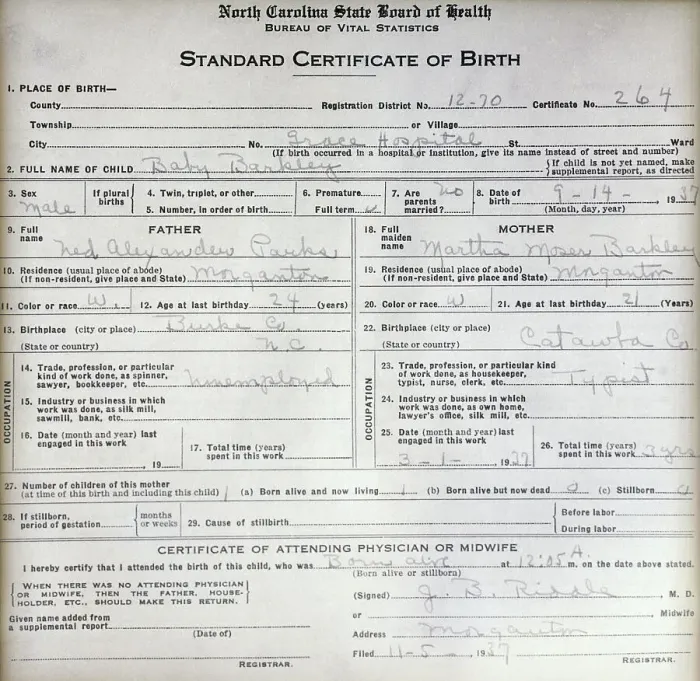 North Carolina State Board of Health
BUREAU OF VITAL STATISTICS
STANDARD CERTIFICATE OF BIRTH
1. PLACE OF BIRTH—
County Registration District No. 12-70 Certificate No. 264
Township or Village
City No. Grace Hospital St. Ward
(If birth occurred in a hospital or institution, give its name instead of street and number)
2. FULL NAME OF CHILD Baby Barkley { If child is not yet named, make supplemental report, as directed
3. Sex Male If plural births 4. Twin, triplet, or other 5. Number, in order of birth 6. Premature Full term 7. Are parents married? No 8. Date of birth 9-14- 1937 (Month, day, year)
FATHER
9. Full name Ned Alexander Parks
10. Residence (usual place of abode) (If non-resident, give place and State) Morganton
11. Color or race W. 12. Age at last birthday 24 (years)
13. Birthplace (city or place) Burke Co.
(State or country) N.C.
OCCUPATION
14. Trade, profession, or particular kind of work done, as spinner, sawyer, bookkeeper, etc. Unemployed
15. Industry or business in which work was done, as silk mill, sawmill, bank, etc.
16. Date (month and year) last engaged in this work , 19
17. Total time (years) spent in this work
MOTHER
18. Full maiden name Martha Moser Barkley
19. Residence (usual place of abode) (If non-resident, give place and State) Morganton
20. Color or race W 21. Age at last birthday 21 (Years)
22. Birthplace (city or place)
(State or country) Catawba Co
OCCUPATION
23. Trade, profession, or particular kind of work done, as housekeeper, typist, nurse, clerk, etc. Typist
24. Industry or business in which work was done, as own home, lawyer's office, silk mill, etc.
25. Date (month and year) last engaged in this work 3-1- 1937
26. Total time (years) spent in this work 3 yrs
27. Number of children of this mother
(at time of this birth and including this child) 1 (a) Born alive and now living 1 (b) Born alive but now dead 0 (c) Stillborn 0
28. If stillborn, period of gestation { months or weeks 29. Cause of stillbirth { Before labor During labor
CERTIFICATE OF ATTENDING PHYSICIAN OR MIDWIFE
I hereby certify that I attended the birth of this child, who was Born alive at 12:05 A. m. on the date above stated.
(Born alive or stillborn)
{ WHEN THERE WAS NO ATTENDING PHYSICIAN OR MIDWIFE, THEN THE FATHER, HOUSEHOLDER, ETC., SHOULD MAKE THIS RETURN. }
(Signed) J. B. Riddle, M. D.
or Midwife
Given name added from a supplemental report (Date of)
Address Morganton
REGISTRAR.
Filed 11-5-, 1937 REGISTRAR.